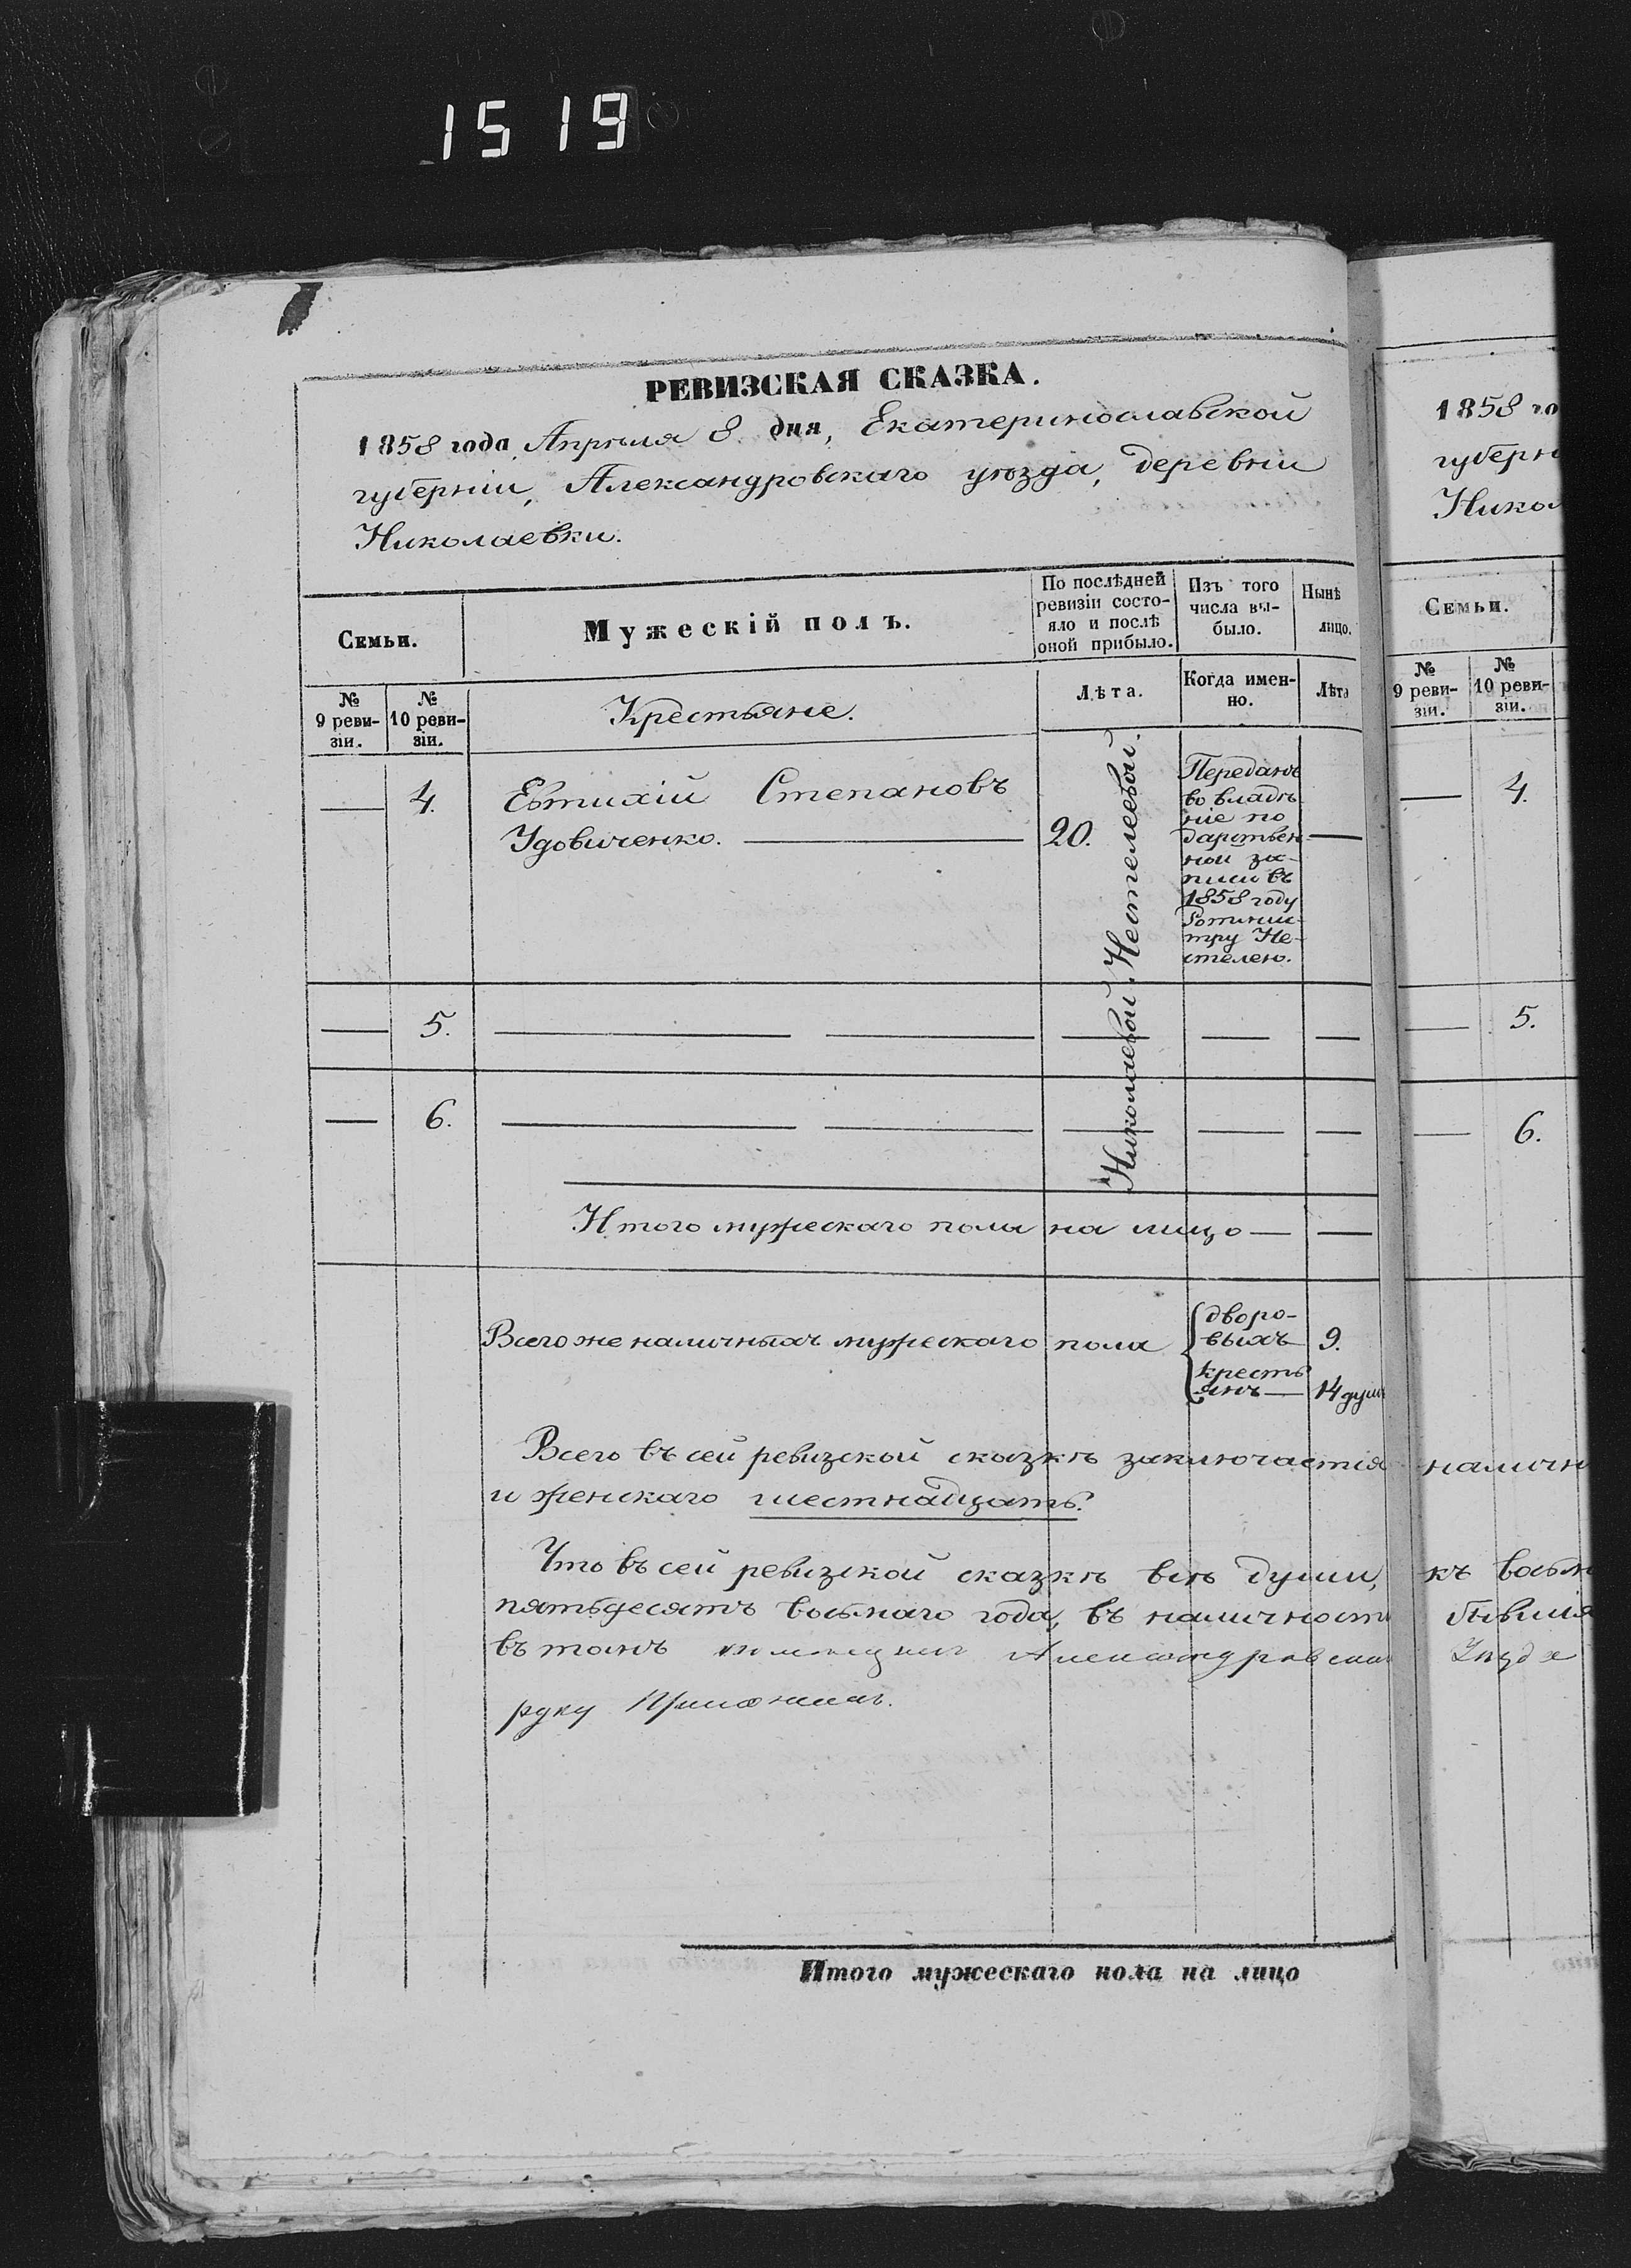 1519
РЕВИЗСКАЯ СКАЗКА.
1858 года Апрѣля 8 дня, Екатеринославской
губерніи, Александровскаго уѣзда, деревни
Николаевки.
Семьи.
Мужескій полъ.
По послѣдней
ревизіи состо-
яло и послѣ
оной прибыло.
Изъ того
числа вы-
было.
Нынѣ
лицо.
№
9 реви-
зіи.
№
10 реви-
зіи.
Крестьяне.
Лѣта.
Когда имен-
но.
Лѣта
4.
Евтихій Степановъ
Удовиченко.
20.
Николаевой Нестелеевой.
Переданъ
во владѣ
ніе по
дарствен-
ной за-
писи въ
1858 году
Ротмис-
тру Не-
стелею.
5.
6.
Итого мужескаго пола на лицо
Всего же наличныхъ мужескаго пола
дворо-
выхъ 9.
кресть
янъ 14 душ
Всего въ сей ревизской сказкѣ заключается
и женскаго шестнадцать.
Что въ сей ревизской сказкѣ всѣ души,
пятьдесятъ восьмаго года, въ наличности
въ томъ Александровска
руку приложилъ.
Итого мужескаго пола на лицо
1858 го
губерн
Никол
Семьи.
№
9 реви-
зіи.
№
10 реви-
зіи.
4.
5.
6.
наличн
къ восьм
бывшія